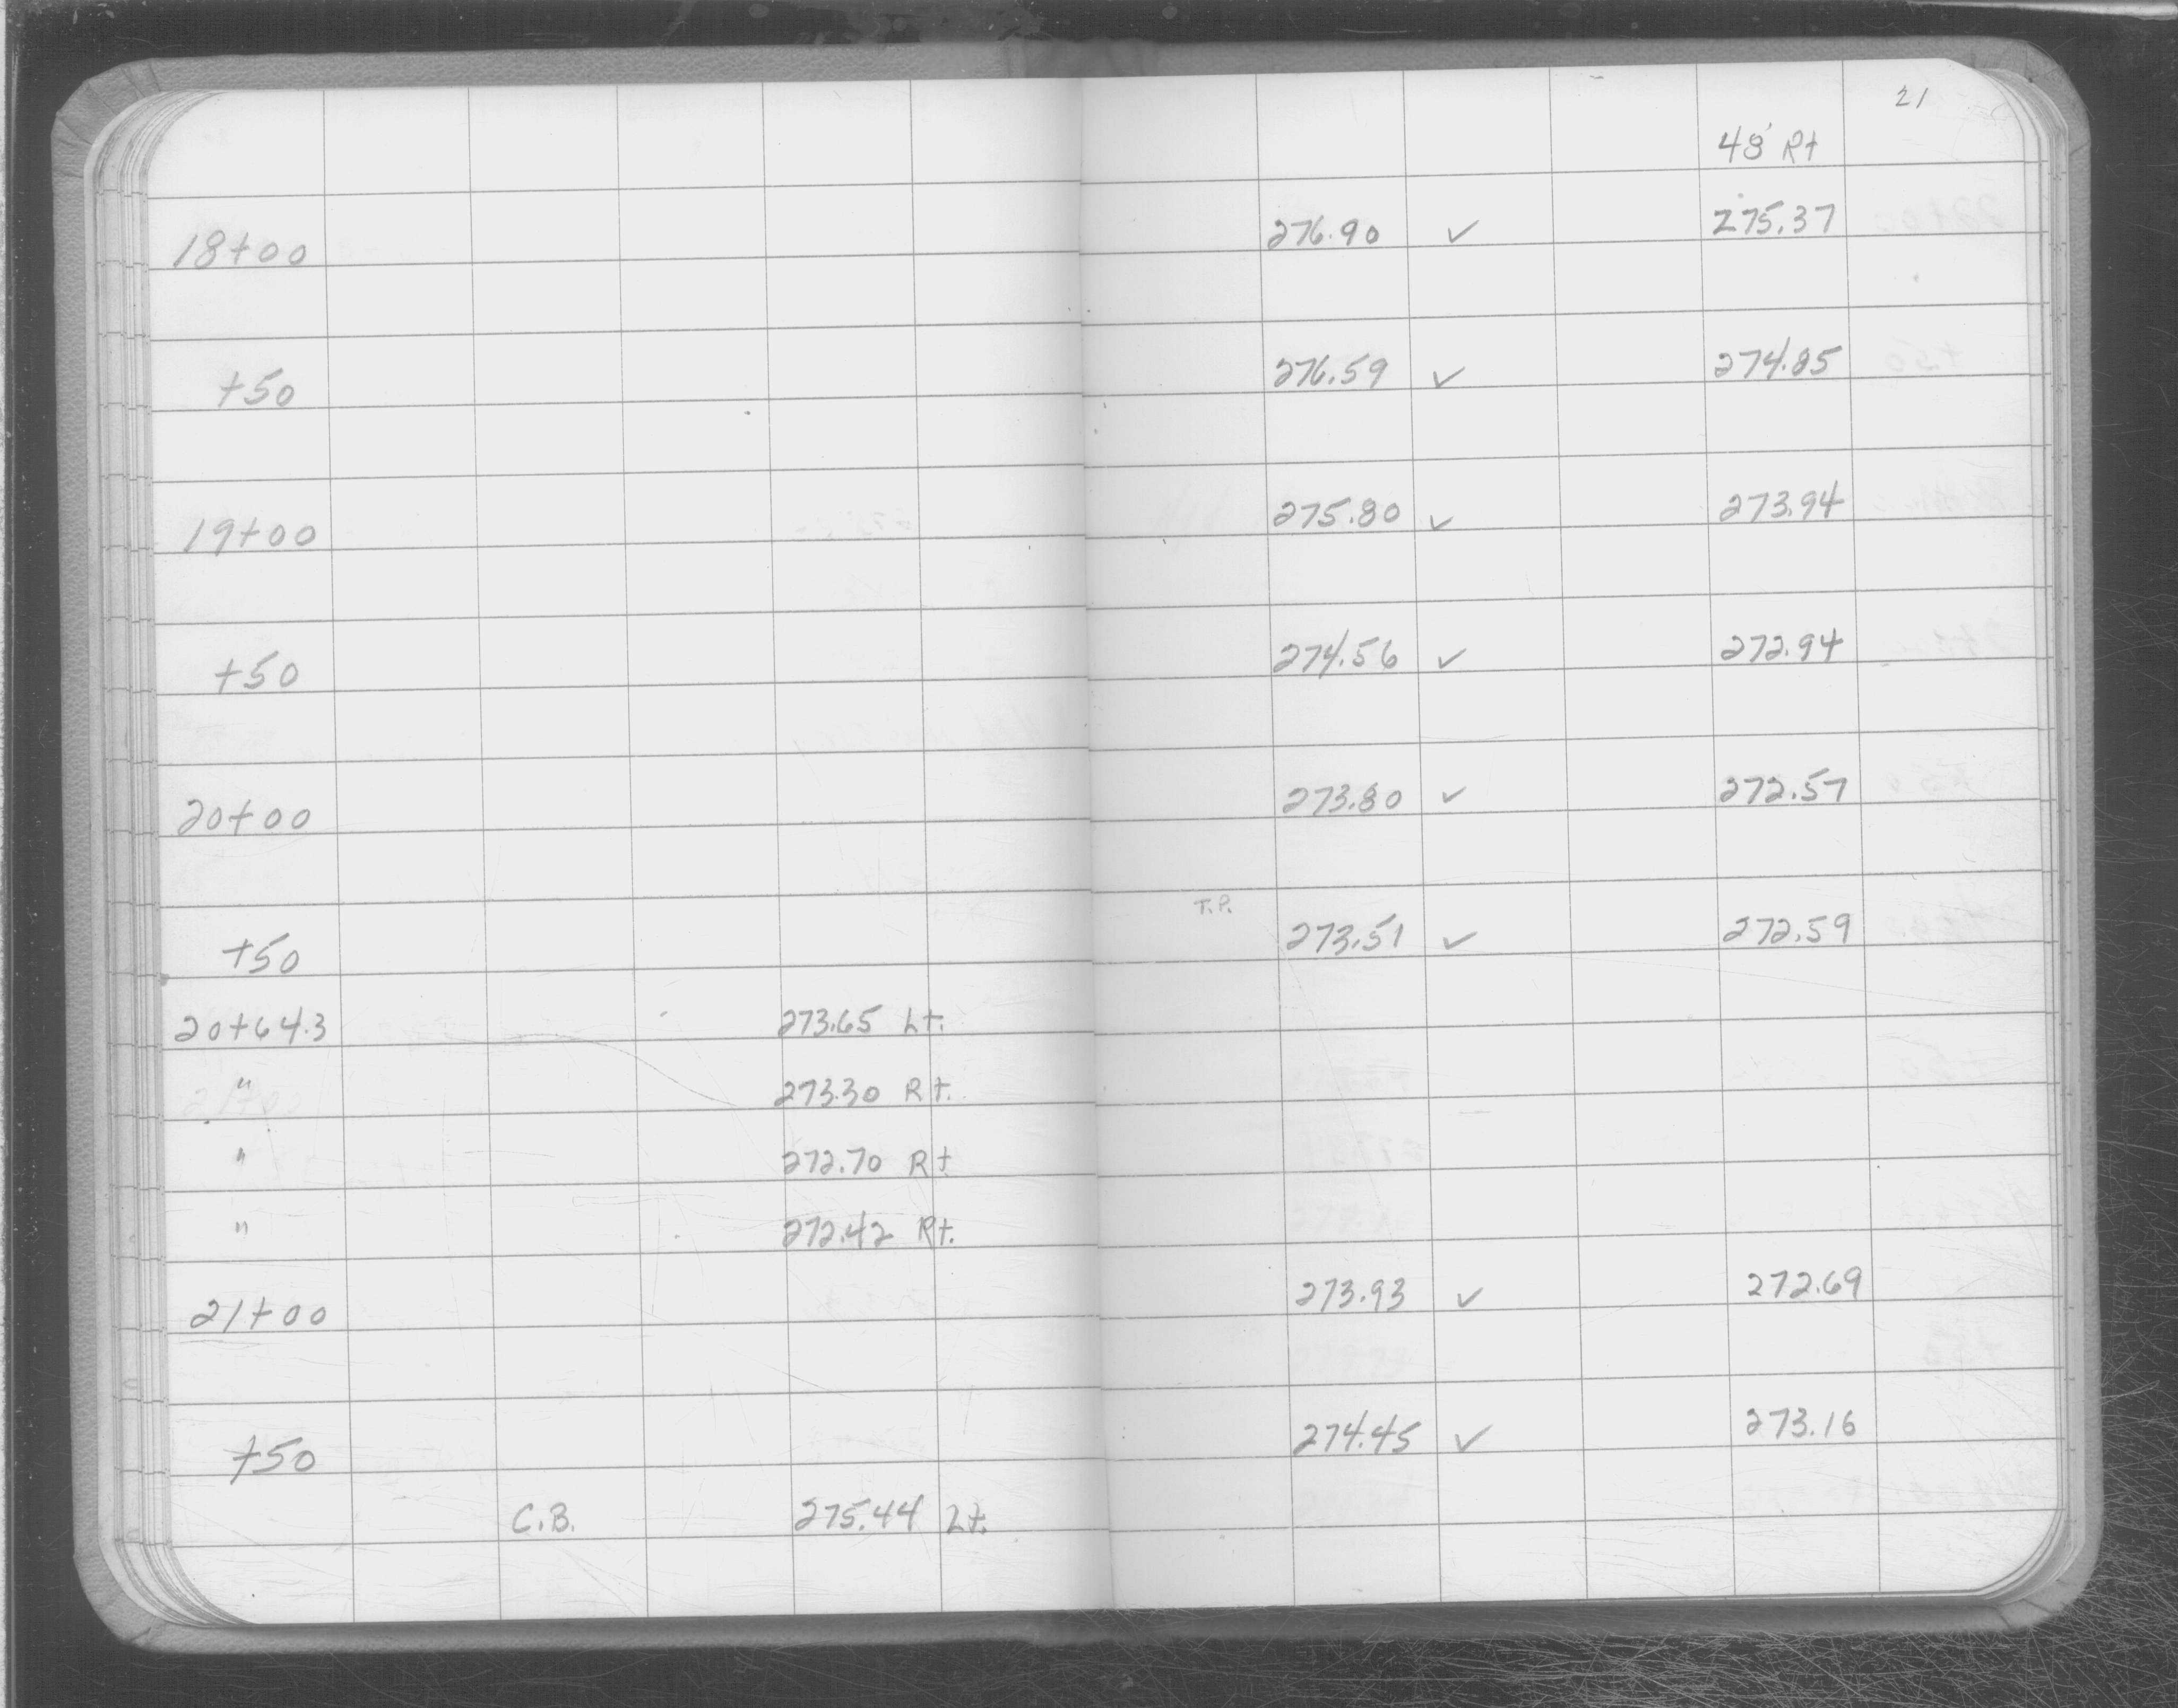 21
48' Rt
18+00 276.90 ✓ 275.37
+50 276.59 ✓ 274.85
19+00 275.80 ✓ 273.94
+50 274.56 ✓ 272.94
20+00 273.80 ✓ 272.57
T.P.
+50 273.51 ✓ 272.59
20+64.3 273.65 Lt.
" 273.30 Rt.
" 272.70 Rt
" 272.42 Rt.
21+00 273.93 ✓ 272.69
+50 274.45 ✓ 273.16
C.B. 275.44 Lt.